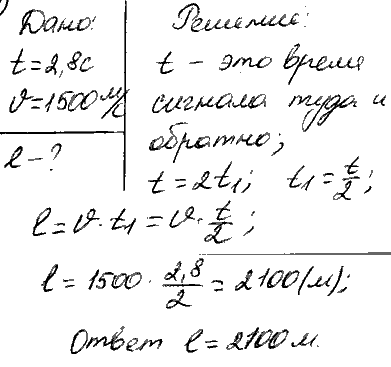 Дано:
t = 2,8 с
υ = 1500 м/с
l - ?
Решение:
t - это время
сигнала туда и
обратно;
t = 2t₁; t₁ = t/2;
l = υ · t₁ = υ · t/2;
l = 1500 · 2,8/2 = 2100 (м);
Ответ l = 2100 м.